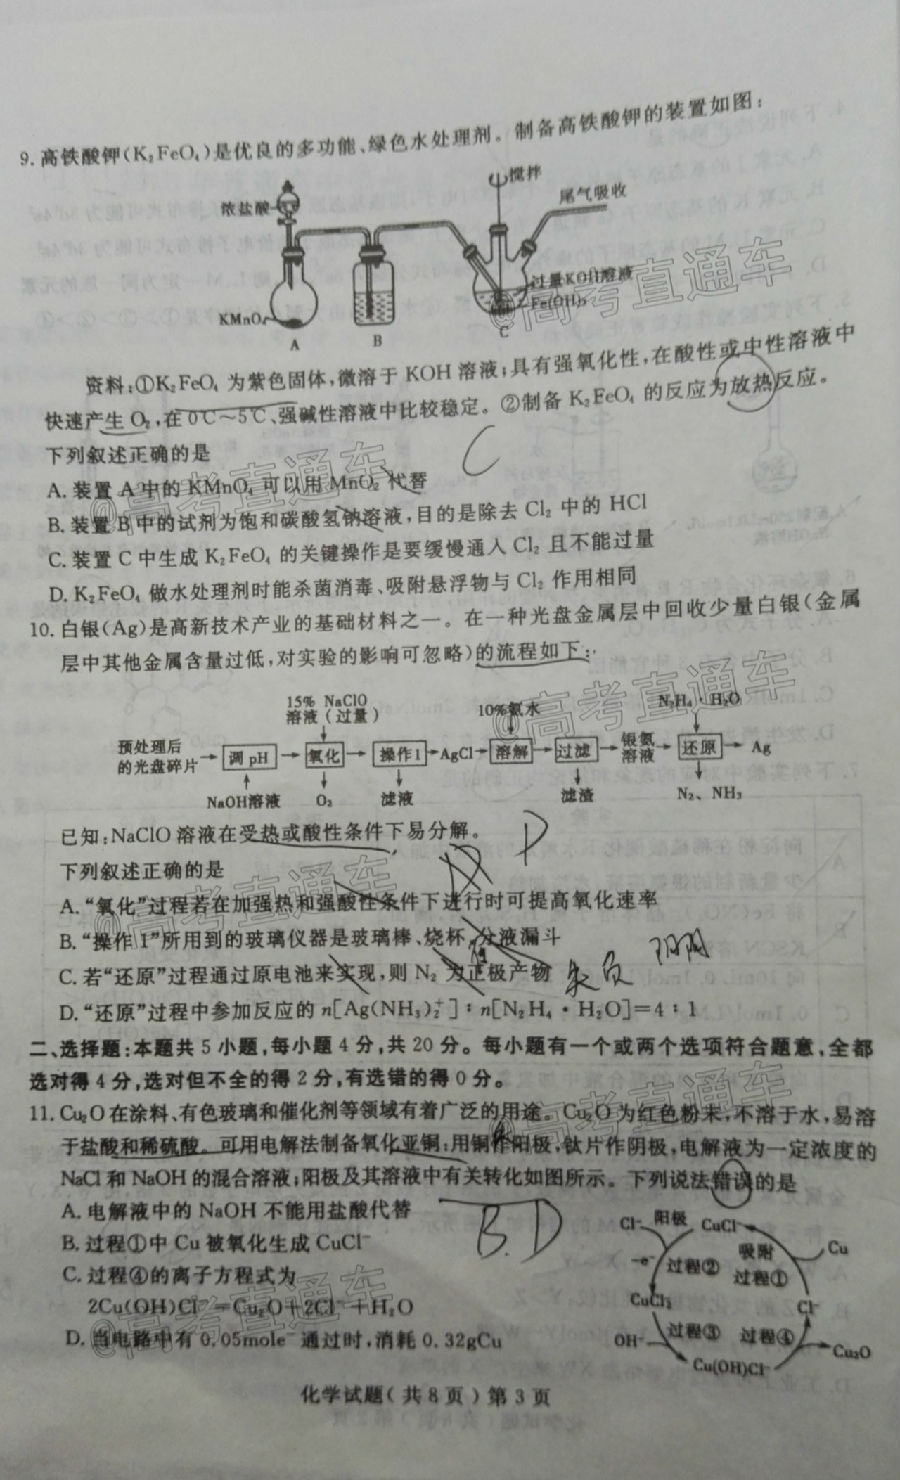 9.高铁酸钾(K₂FeO₄)是优良的多功能、绿色水处理剂。制备高铁酸钾的装置如图:
搅拌
尾气吸收
浓盐酸
过量KOH溶液
Fe(OH)₃
KMnO₄
A
B
C
资料:①K₂FeO₄ 为紫色固体,微溶于 KOH 溶液;具有强氧化性,在酸性或中性溶液中
快速产生 O₂,在 0℃~5℃、强碱性溶液中比较稳定。②制备 K₂FeO₄ 的反应为放热反应。
下列叙述正确的是
C
A.装置 A 中的 KMnO₄ 可以用 MnO₂ 代替
B.装置 B 中的试剂为饱和碳酸氢钠溶液,目的是除去 Cl₂ 中的 HCl
C.装置 C 中生成 K₂FeO₄ 的关键操作是要缓慢通入 Cl₂ 且不能过量
D.K₂FeO₄ 做水处理剂时能杀菌消毒、吸附悬浮物与 Cl₂ 作用相同
10.白银(Ag)是高新技术产业的基础材料之一。在一种光盘金属层中回收少量白银(金属
层中其他金属含量过低,对实验的影响可忽略)的流程如下:
15% NaClO
溶液(过量)
10%氨水
N₂H₄·H₂O
预处理后
的光盘碎片
调 pH
氧化
操作1
AgCl
溶解
过滤
银氨
溶液
还原
Ag
NaOH溶液
O₂
滤液
滤渣
N₂、NH₃
已知:NaClO 溶液在受热或酸性条件下易分解。
下列叙述正确的是
D
A.“氧化”过程若在加强热和强酸性条件下进行时可提高氧化速率
B.“操作 1”所用到的玻璃仪器是玻璃棒、烧杯、分液漏斗
C.若“还原”过程通过原电池来实现,则 N₂ 为正极产物
失负
D.“还原”过程中参加反应的 n[Ag(NH₃)₂⁺]:n[N₂H₄·H₂O]=4:1
二、选择题:本题共 5 小题,每小题 4 分,共 20 分。每小题有一个或两个选项符合题意,全都
选对得 4 分,选对但不全的得 2 分,有选错的得 0 分。
11.Cu₂O 在涂料、有色玻璃和催化剂等领域有着广泛的用途。Cu₂O 为红色粉末,不溶于水,易溶
于盐酸和稀硫酸。可用电解法制备氧化亚铜:用铜作阳极,钛片作阴极,电解液为一定浓度的
NaCl 和 NaOH 的混合溶液;阳极及其溶液中有关转化如图所示。下列说法错误的是
A.电解液中的 NaOH 不能用盐酸代替
B.过程①中 Cu 被氧化生成 CuCl⁻
C.过程④的离子方程式为
2Cu(OH)Cl⁻=Cu₂O+2Cl⁻+H₂O
D.当电路中有 0.05mole⁻ 通过时,消耗 0.32gCu
B.D
Cl⁻
阳极
CuCl⁻
Cu
吸附
-e⁻
过程②
过程①
CuCl₂⁻
Cl⁻
OH⁻
过程③
过程④
Cu₂O
Cu(OH)Cl⁻
化学试题(共 8 页)第 3 页
@高考直通车
@高考直通车
@高考直通车
@高考直通车
@高考直通车
@高考直通车